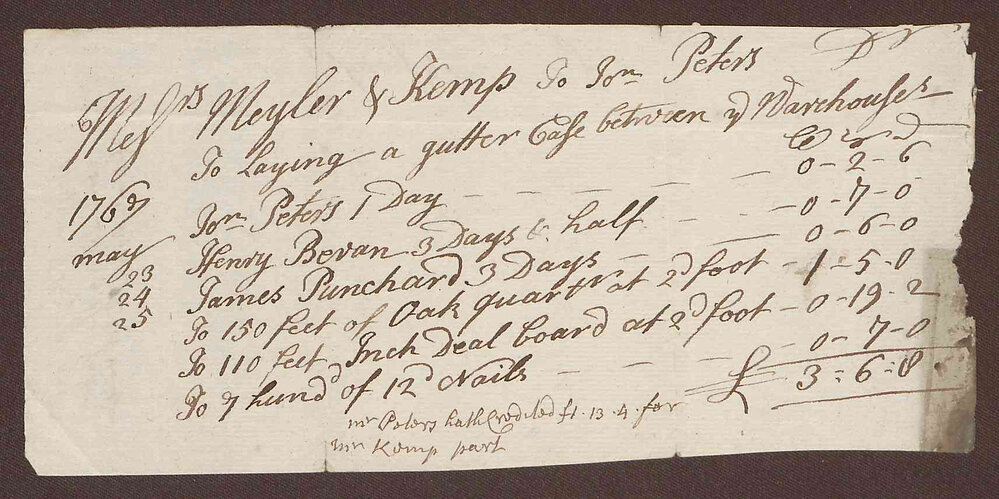 Messrs Meyler & Kemp To Jon Peters Dr
To Laying a gutter Case between ye Warehouses
1767 Jon Peters 1 Day — — — — — 0 - 2 - 6
may Henry Bevan 3 Days & half — — 0 - 7 - 0
23 James Punchard 3 Days — — 0 - 6 - 0
24 To 150 feet of Oak quartr at 2d foot - 1 - 5 - 0
25 To 110 feet Inch Deal board at 2d foot - 0 - 19 - 2
To 7 hund of 12d Nails — — — 0 - 7 - 0
£ 3 : 6 : 8
mr Peters hath Credited £1.13.4. for
mr Kemp part